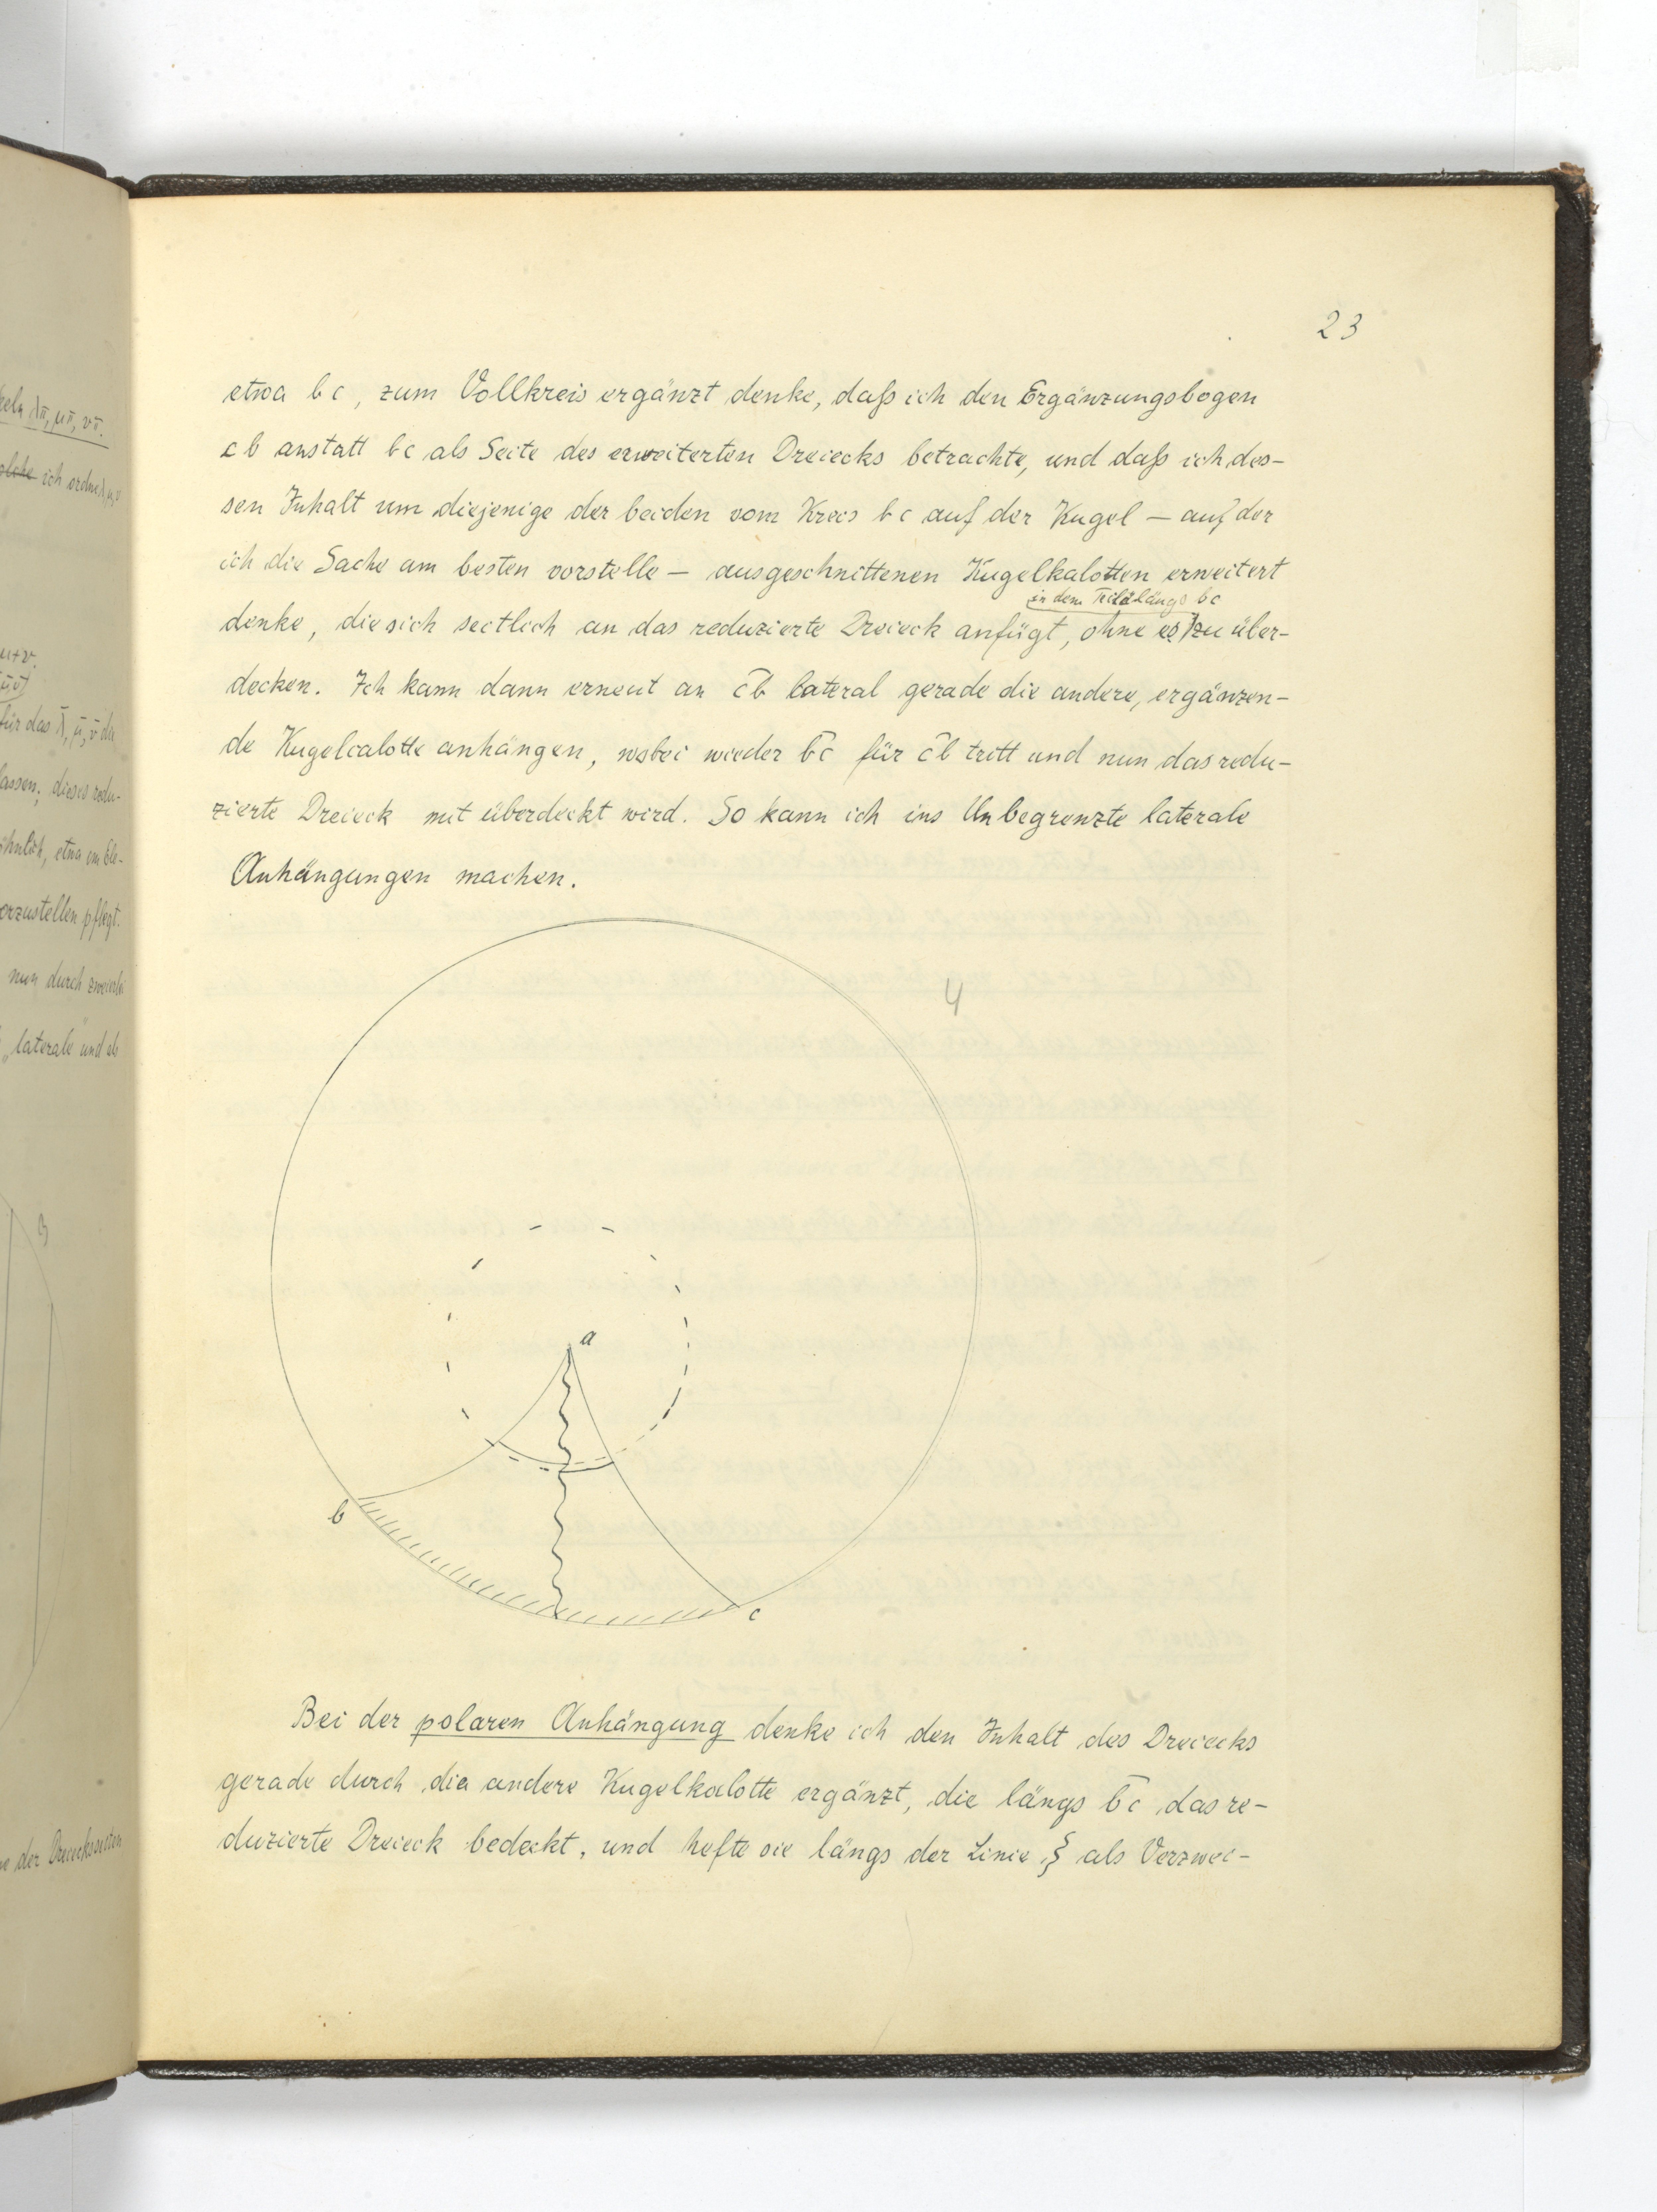 23
etwa bc, zum Vollkreis ergänzt denke, daß ich den Ergänzungsbogen
cb anstatt bc als Seite des erweiterten Dreiecks betrachte, und daß ich des-
sen Inhalt um diejenige der beiden vom Kreis bc auf der Kugel — auf der
ich die Sache am besten vorstelle — ausgeschnittenen Kugelkalotten erweitert
in dem Teile längs bc
denke, die sich seitlich an das reduzierte Dreieck anfügt, ohne es zu über-
decken. Ich kann dann erneut an c̅b̅ lateral gerade die andere, ergänzen-
de Kugelcalotte anhängen, wobei wieder b̅c̅ für c̅b̅ tritt und nun das redu-
zierte Dreieck mit überdeckt wird. So kann ich ins Unbegrenzte laterale
Anhängungen machen.
4
a
b
c
Bei der polaren Anhängung denke ich den Inhalt des Dreiecks
gerade durch die andere Kugelkalotte ergänzt, die längs b̅c̅ das re-
duzierte Dreieck bedeckt, und hefte sie längs der Linie ⸾ als Verzwei-
keln λπ, μπ, νπ.
ich ordne λ, μ, ν
μ+ν.
für das λ̄, μ̄, ν̄ da
lassen; dieses redu-
ähnlich, etwa ein Ele-
vorzustellen pflegt.
nun durch zweierlei
„laterale und
3
der Dreiecksseiten